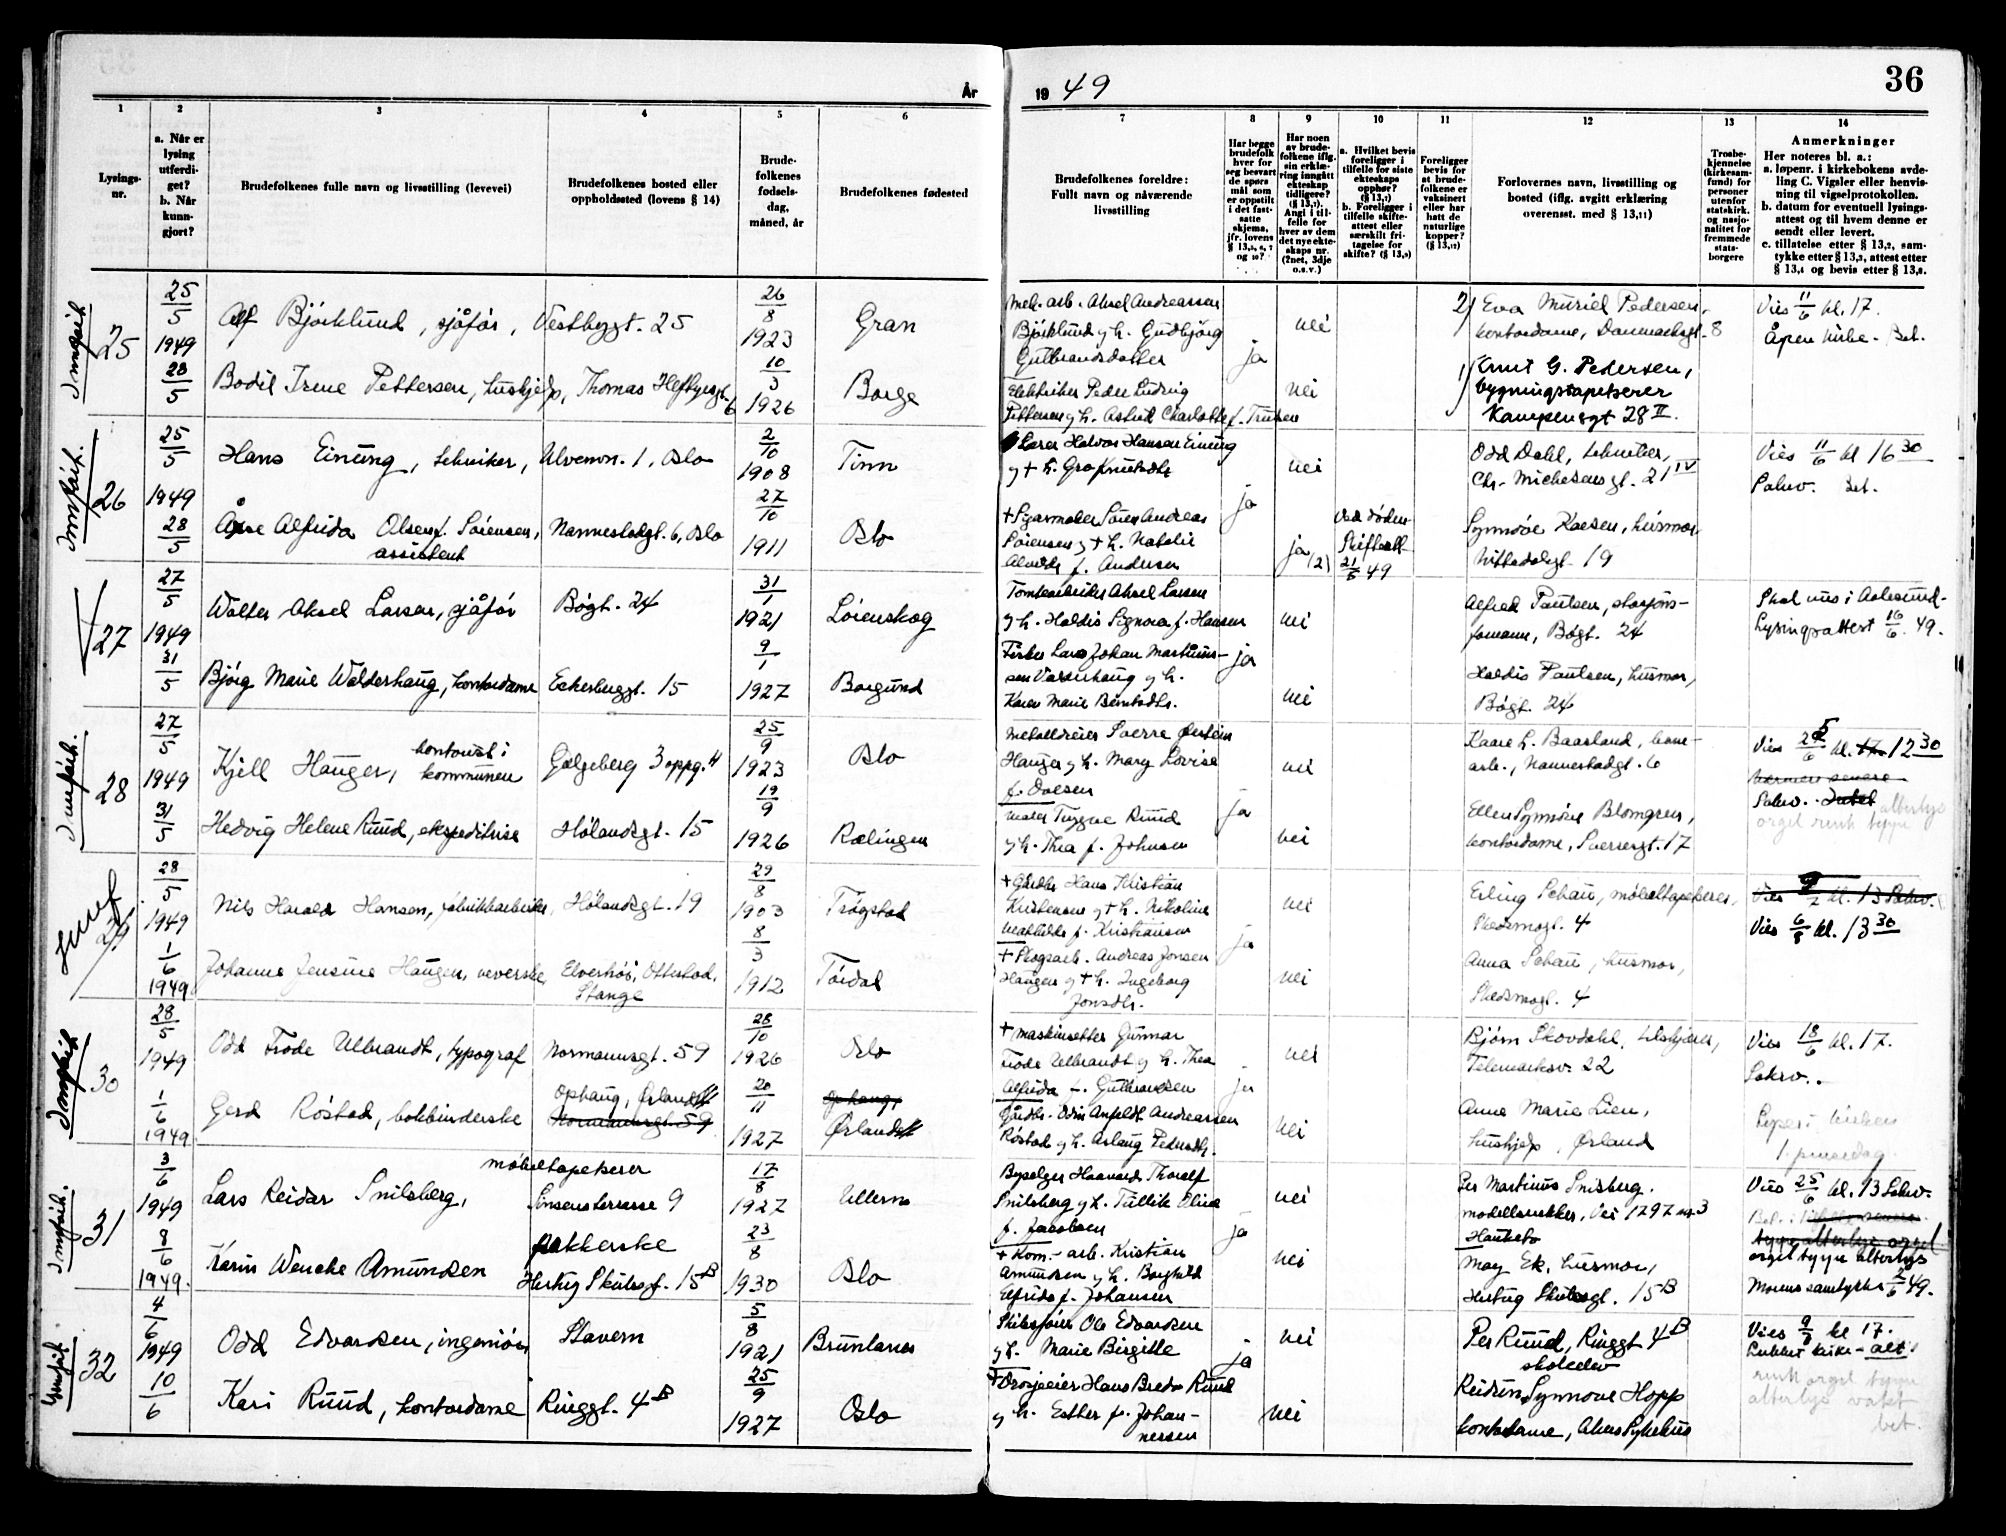 År 19 49
36
1
2
3
4
5
6
7
8
9
10
11
12
13
14
Lysings-
nr.
a. Når er
lysing
utferdi-
get?
b. Når
kunn-
gjort?
Brudefolkenes fulle navn og livsstilling (levevei)
Brudefolkenes bosted eller
oppholdssted (lovens § 14)
Brude-
folkenes
fødsels-
dag,
måned, år
Brudefolkenes fødested
Brudefolkenes foreldre:
Fullt navn og nåværende
livsstilling
Har begge
brudefolk
hver for
seg besvart
de spørs
mål som
er oppstilt
i det fast-
satte
skjema,
jfr. lovens
Har noen
av brude-
folkene iflg.
sin erklæ-
ring inngått
ekteskap
tidligere?
Angi i til-
felle for
hver av dem
det nye ekte-
skaps nr.
(2net, 3dje
o.s.v.)
a. Hvilket bevis
foreligger i
tilfelle for siste
ekteskaps
opphør?
b. Foreligger i
tilfelle skifte-
attest eller
særskilt fri-
tagelse for
skifte? (§ 13,9)
Foreligger
bevis for
at brude-
folkene er
vaksinert
eller har
hatt de
naturlige
kopper?
Forlovernes navn, livsstilling og
bosted (iflg. avgitt erklæring
overensst. med § 13,11)
Trosbe-
kjennelse
(kirkesam-
fund) for
personer
utenfor
statskirk.
og nasjo-
nalitet for
fremmede
stats-
borgere
Anmerkninger
Her noteres bl. a.:
a. løpenr. i kirkebokens avde-
ling C. Vigsler eller henvis-
ning til vigselprotokollen.
b. datum for eventuell lysings-
attest og til hvem denne er
sendt eller levert.
c. tillatelse etter § 13,2, sam-
tykke etter § 13,3, attest etter
§ 13,4 og bevis etter § 13,8.
25
25/5 1949
28/5
Alf Bjørklund, sjåfør, Vestbygt. 25
26/8 1923
Gran
Mek. arb. Aksel Andreassen
Bjørklund g h. Gudbjørg
Gulbrandsdatter
ja
nei
2) Eva Muriel Pedersen,
kontordame, Danmarksgt. 8
Vies 11/6 kl. 17.
Åpen kirke. Bet.
Bodil Irene Pettersen, hushjelp, Thomas Heftyesgt. 6
10/3 1926
Borge
Elektriker Peder Ludvig
Pettersen g h. Astrid Charlotte f.
nei
1) Knut G. Pedersen,
bygningstapetserer
Kampensgt 28 II.
26
25/5 1949
28/5
Hans Einung, tekniker, Ulvenvn. 1, Oslo
2/10 1908
Tinn
Lærer Halvor Hansen Einung
g + h. Gro Knutsdtr
ja
nei
Odd Dahl, tekniker,
Chr. Michelsens gt. 21 IV
Vies 11/6 kl 16 30
Bet.
Åse Alfrida Olsen f. Sørensen,
assistent
Nannestadgt. 6, Oslo
27/10 1911
Oslo
Søren Andreas
Sørensen g + h. Natalie
f. Andersen
ja (2)
Ved døden
Skifteatt.
21/5 49
Synnøve Karsen, husmor,
Nittedalsgt 19
27
27/5 1949
31/5
Walter Aksel Larsen, sjåfør
Bøgt. 24
31/1 1921
Lørenskog
Aksel Larsen
g h. Haldis Signora f. Hansen
ja
nei
Alfred Paulsen, stasjons-
formann, Bøgt. 24
Skal vies i Aalesund.
Lysingsattest 16/6. 49.
Bjørg Marie Walderhaug, kontordame
Eckersbergt. 15
9/1 1927
Borgund
Fisker Lars Johan Martinus-
sen Valderhaug g h.
Karen Marie Berntsdtr.
nei
Haldis Paulsen, husmor,
Bøgt. 24
28
27/5 1949
31/5
Kjell Hauger, kontorist i
kommunen
Galgeberg 3 oppg. 4
25/9 1923
Oslo
Metalldreier Sverre Øistein
Hauger g h. Mary Lovise
f. Olsen
ja
nei
Kaare L. Baarland,
arb., Nannestadgt. 6
Vies 25/6 kl. 17. 12 30
Sakrv. alterlys
orgel rosk tepper
Hedvig Helene Ruud, ekspeditrise
Hølandsgt. 15
19/9 1926
Rælingen
Maler Trygve Ruud
g h. Thea f. Johnsen
nei
Ellen Synnøve Blomgren,
kontordame, Sverresgt. 17
29
28/5 1949
1/6 1949
Nils Harald Hansen, fabrikkarbeider,
Hølandsgt. 19
29/8 1903
Trøgstad
+ Gårdbr Hans Kristian
Kristensen g + h. Nikoline
Mathilde f. Kristiansen
ja
nei
Erling Schau, møbeltapetserer,
Skedsmogt. 4
Vies 9/7 kl. 13 Sakrv.
Vies 6/8 kl. 13 30
Johanne Jensine Haugen, veverske,
Elverhøi, Ottestad,
Stange
8/3 1912
Tørdal
+ Skogsarb. Andreas Jonsen
Haugen g + h. Ingeborg
Jonsdtr.
nei
Anna Schau, husmor,
Skedsmogt. 4
30
28/5 1949
1/6 1949
Odd Frode Ulbrandt, typograf
Normannsgt. 59
28/10 1926
Oslo
+ Maskinsetter Gunnar
Frode Ulbrandt g h. Thea
Alfrida f. Gulbrandsen
ja
nei
Bjørn Skovdahl,
Telemarksv. 22
Vies 18/6 kl. 17.
Sakrv.
Gerd Røstad, bokbinderske
Ophaug, Ørlandet
Normannsgt. 59
20/11 1927
Ophaug,
Ørlandet
Gårdbr. Odin Anfeldt Andreassen
Røstad g h. Aslaug Pedersdtr.
nei
Anne Marie Lien,
hushjelp, Ørland
31
3/6 1949
8/6 1949.
Lars Reidar Snilsberg,
møbeltapetserer
Sinsenterrasse 9
17/8 1927
Ullern
Byselger Haavard Thoralf
Snilsberg g h.
f. Jacobsen
ja
nei
Per Martinus Snilsberg,
modellsnekker, Vei 1797 nr. 3
Hauketo
Vies 25/6 kl. 13 Sakrv.
orgel tepper alterlys
Morens samtykke 2/6 49.
Karin Wenche Amundsen
pakkerske
Hertug Skulesg. 15 B
23/8 1930
Oslo
+ Kom.-arb. Kristian
Amundsen g h. Borghild
Elfrida f. Johansen
nei
May Ek, husmor,
Hertug Skulesgt. 15 B
32
4/6 1949
10/6
Odd Edvardsen, ingeniør
Stavern
5/8 1921
Brunlanes
Skipsfører Ole Edvardsen
g h. Marie Birgitte
ja
nei
Per Ruud, Ringgt 4 B
skoleelev
Vies 9/7 kl 17.
Lukket kirke - alt
Kari Ruud, kontordame
Ringgt. 4 B
25/9 1927
Oslo
+ Drosjeeier Hans Bredo Ruud
g h. Esther f. Johan-
nessen
nei
Reidun Synnøve Hopp
kontordame, Akers Sykehus
bet.